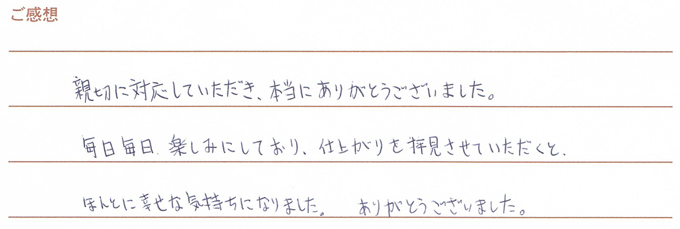 ご感想
親切に対応していただき、本当にありがとうございました。
毎日毎日、楽しみにしており、仕上がりを拝見させていただくと、
ほんとに幸せな気持ちになりました。 ありがとうございました。